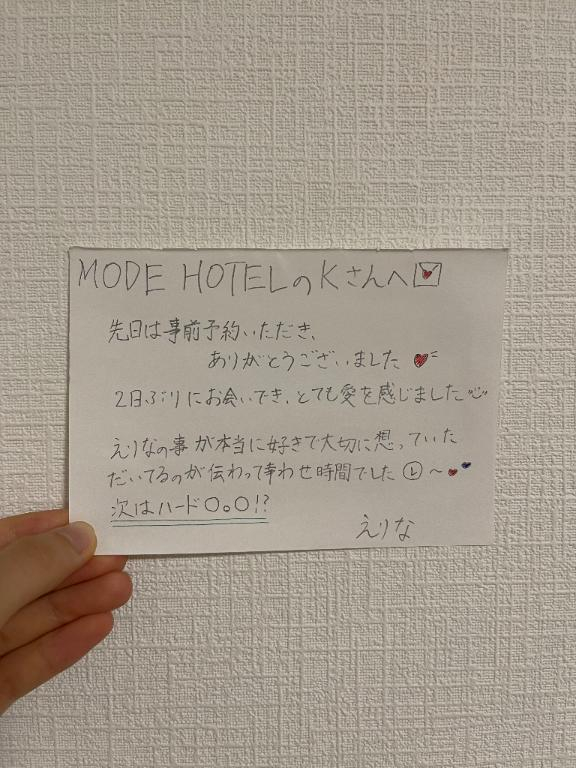 MODE HOTELのKさんへ
先日は事前予約いただき、
ありがとうございました
2日ぶりにお会いでき、とても愛を感じました
えりなの事が本当に好きで大切に想っていた
だいてるのが伝わって幸わせ時間でした
次はハード〇。〇!?
えりな